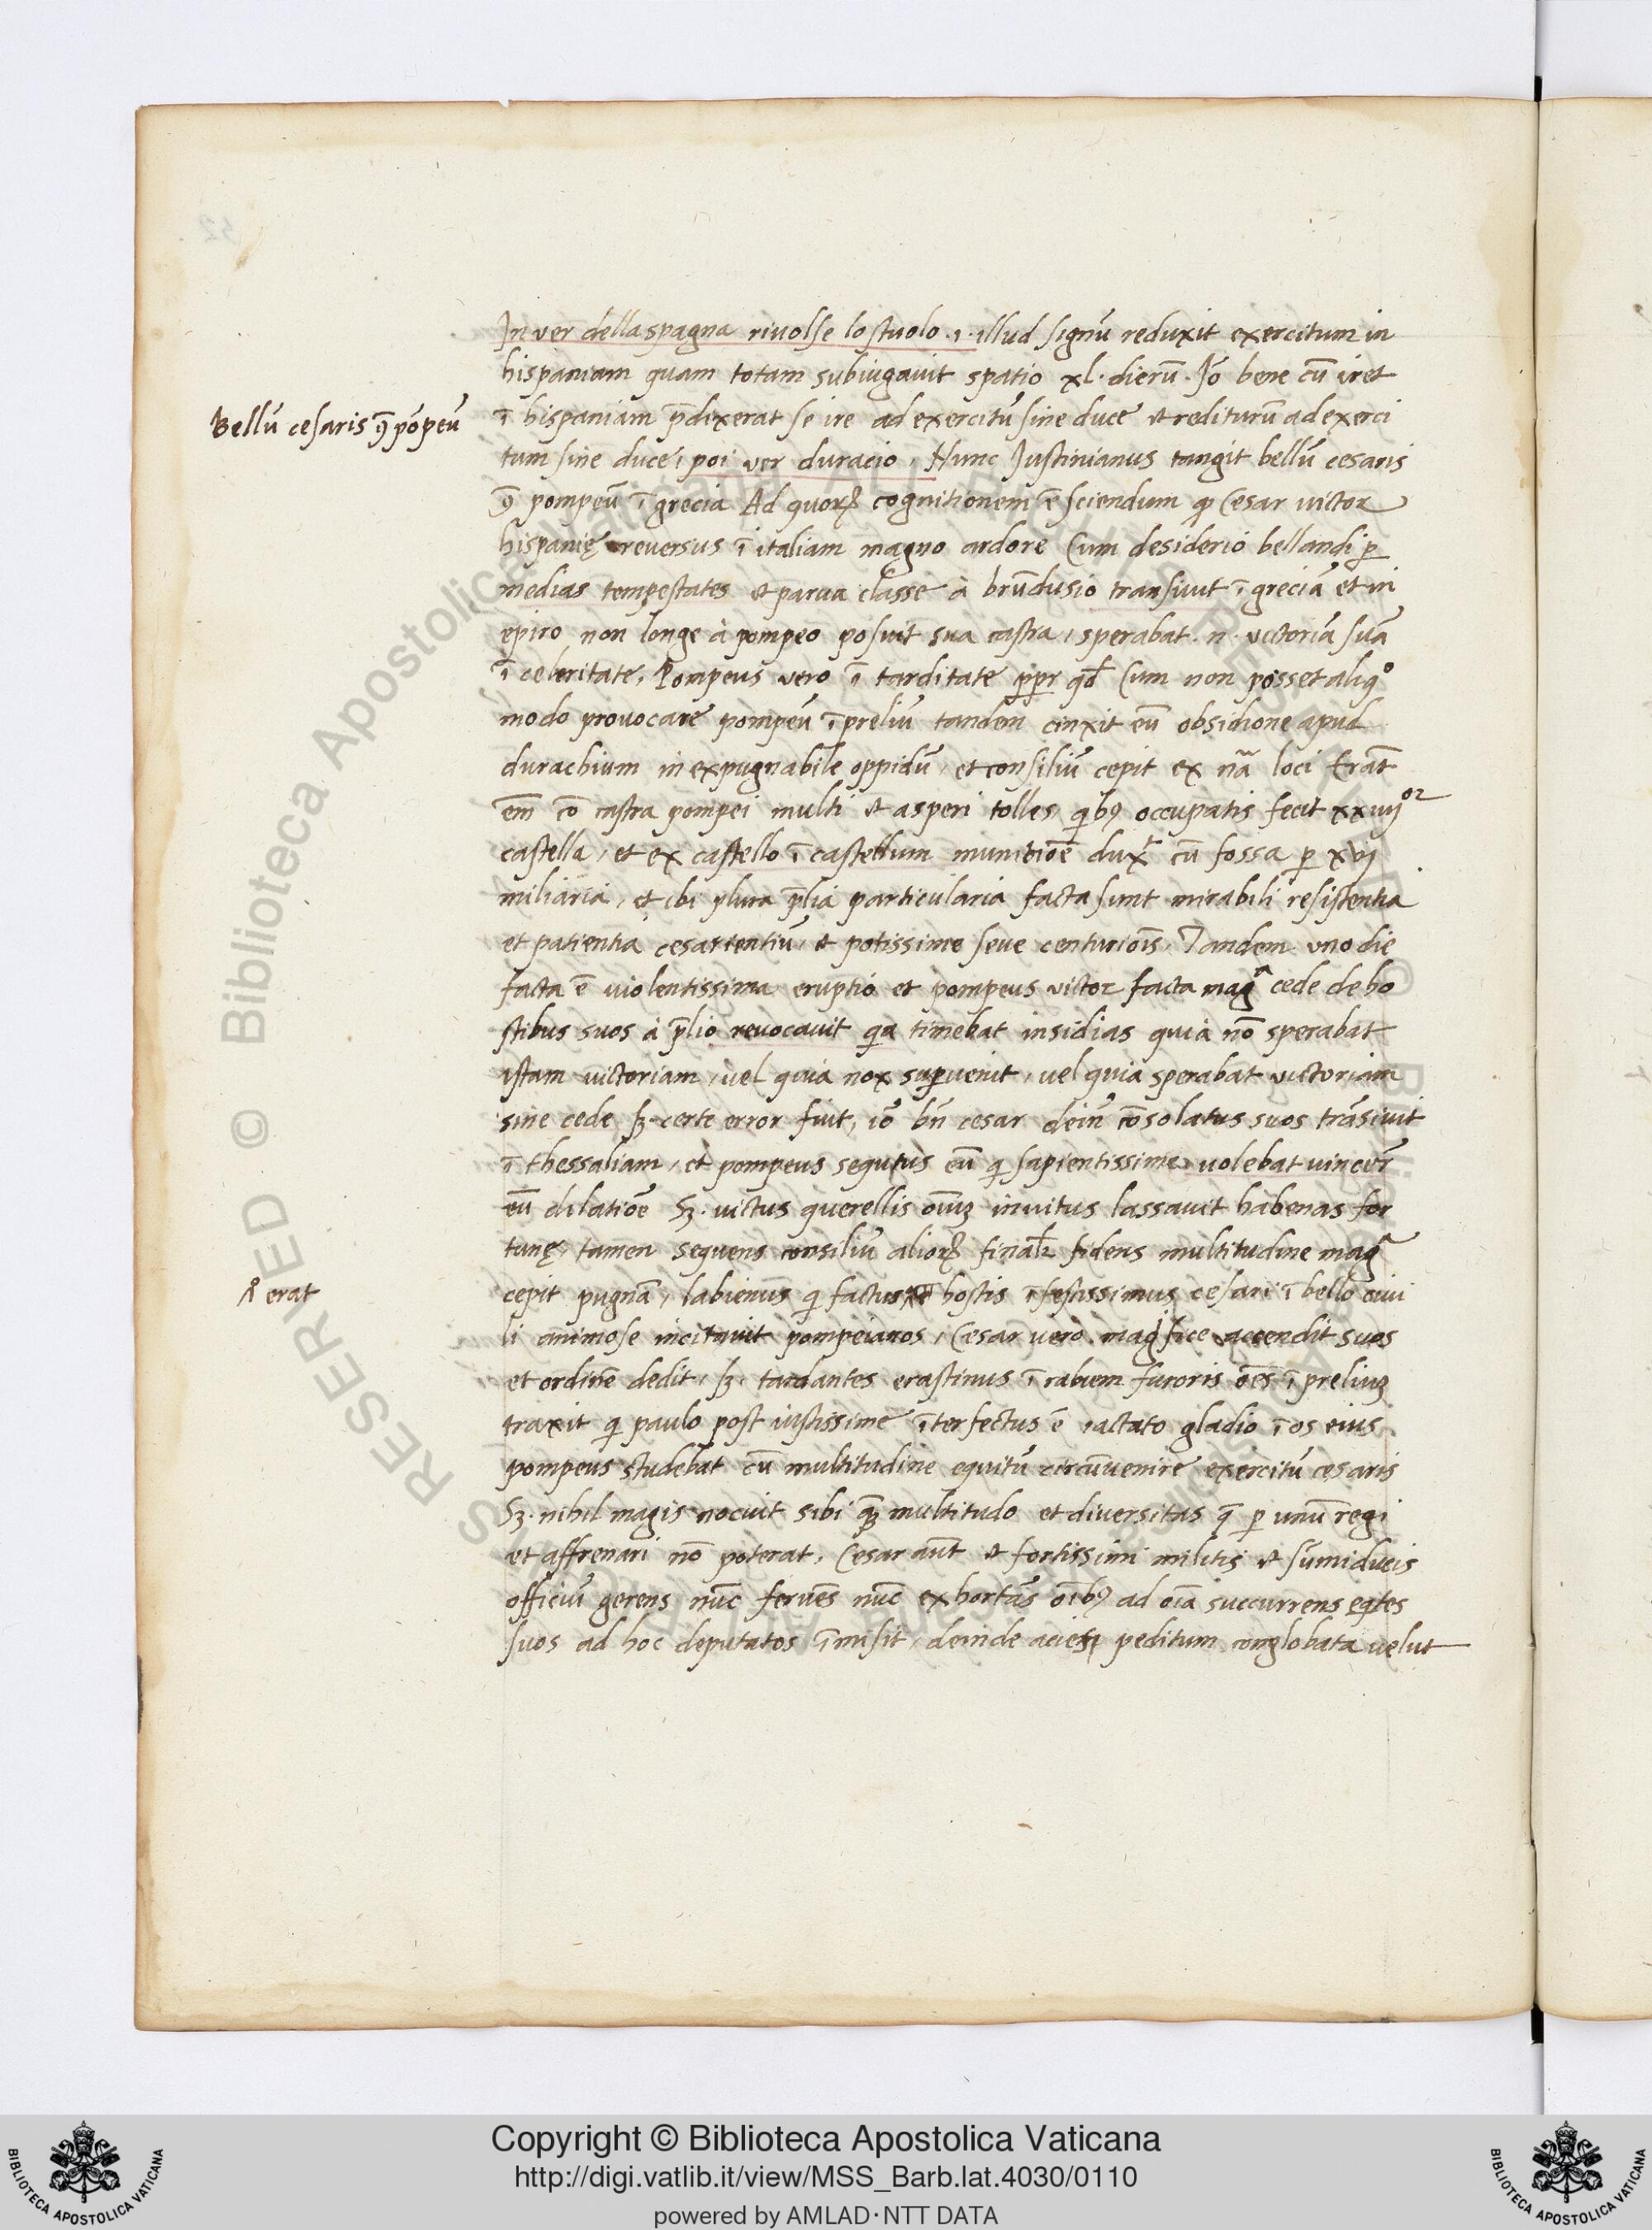 In ver della spagna rivolse lo stuolo .i. illud signū reduxit exercitum in
hispaniam quam totam subiugauit spatio xl. dierū. Iō bene cū iret
Bellū cesaris ꝯ pōpeū
ī hispaniam p̄dexerat se ire ad exercitū sine duce et rediturū ad exerci
tum sine duce, poi ver duracio, Hunc Justinianus tangit bellū cesaris
ꝯ pompeū ī grecia Ad quorꝝ cognitionem ē sciendum ꝙ Cesar victor
hispanię reversus ī italiam magno ardore Cum desiderio bellandi ꝑ
medias tempestates et parua classe à brūdusio transiuit ī greciā et in
epiro non longe à pompeo posuit sua castra, sperabat .n. victoriā suā
ī celeritate, Pompeus vero ī tarditate ꝓpr qd̄ Cum non posset aliqº
modo provocare pompeū ī preliū tandem cinxit eū obsidione apud
durachium inexpugnabile oppidū, et consiliū cepit ex nā̄ loci Erāt
em̄ co castra pompei multi et asperi colles, qibꝫ occupatis fecit xxiiijor
castella, et ex castello ī castellum munitiōē dux̄ cū fossa ꝑ xvj
miliaria, et ibi plura p̄lia particularia facta sunt mirabili resistentia
et patientia cesarientiū, et potissime seve centuriōis, Tandem uno die
facta ē violentissima eruptio et pompeus victor facta magᵃ cede de ho
stibus suos à p̄lio revocauit qia timebat insidias quia nō sperabat
istam victoriam, vel quia nox suꝑvenit, vel quia sperabat victoriam
sine cede sꝫ certe error fuit, iō bn̄ cesar dein̄ cōsolatus suos trāsiuit
ī thessaliam, et pompeus sequtus eū qi sapientissime volebat vincere
eū dilatiōe Sꝫ. victus querellis oīuꝫ invitus lassavit habenas for
tunę, tamen sequens consiliū aliorꝝ finalr̄ fidens multitudine magᵃ
erat
cepit pugnā, labienus qi factus hostis īfestissimus cesari ī bello ciui
li animose incitauit pompeianos, Cesar vero magifice accendit suos
et ordinē dedit, sꝫ. tardantes crastinus ī rabiem furoris ōēs ī preliuꝫ
traxit qi paulo post iustissime īterfectus ē iactato gladio ī os eius.
pompeus studebat cū multitudine equitū circūvenire exercitū cesaris
Sꝫ. nihil magis nocuit sibi qꝫ multitudo et diversitas q̄ ꝑ unū regi
et affrenari nō poterat, Cesar aūt et fortissimi militis et sūmi ducis
officiū gerens nūc feruēs nūc exhortās oībꝫ ad oīa succurrens eqites
suos ad hoc deputatos īmisit, deinde acies peditum conglobata velut
Copyright © Biblioteca Apostolica Vaticana
http://digi.vatlib.it/view/MSS_Barb.lat.4030/0110
powered by AMLAD·NTT DATA
BIBLIOTECA APOSTOLICA VATICANA
BIBLIOTECA APOSTOLICA VATICANA